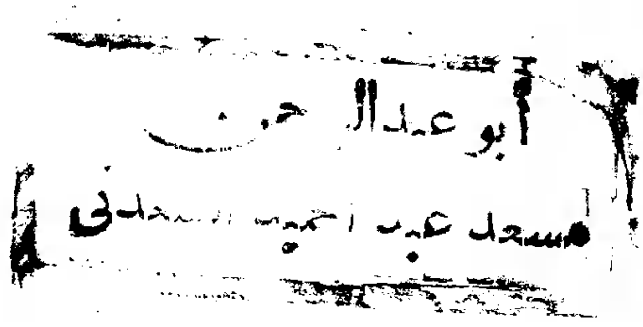 أبو عبدالرحمن
مسعد عبد الحميد السعدني